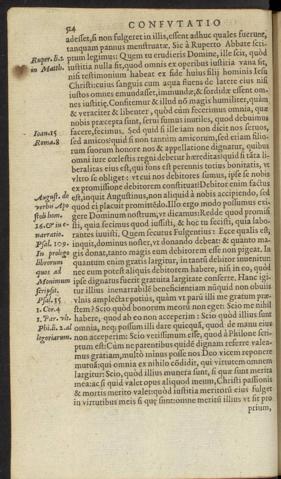 524 CONFVTATIO
adesset, si non fulgeret in illis, essent adhuc quales fuerunt,
tanquam pannus menstruatæ. Sic à Ruperto Abbate scri-
Ruper. li. 2. ptum legimus: Quem tu erudieris Domine, ille scit, quòd
in Matth. iustitia nulla sit, quod omnis ex operibus iustitia vana sit,
nisi testimonium habeat ex fide huius filij hominis Iesu
Christi: cuius sanguis cum aqua fluens de latere eius nisi
iustos omnes emundasset, immundæ, & sordidæ essent om-
nes iustitiæ. Consitemur & illud nō magis humiliter, quàm
& veraciter & libenter, quòd cùm fecerimus omnia, quæ
nobis præcepta sunt, serui sumus inutiles, quod debuimus
Ioan. 15 facere, fecimus. Sed quid si ille iam non dicit nos seruos,
Roma. 8 sed amicos? quid si non tantùm amicorum, sed etiam filio-
rum suorum honore nos & appellatione dignatur, quibus
omni iure cœlestis regni debetur hæreditas? quid si tāta li-
beralitas eius est, qui fons est perennis totius bonitatis, vt
vltro se obliget: vt cui nos debitores sumus, ipse se nobis
ex promissione debitorem constituat? Debitor enim factus
August. de est, inquit Augustinus, non aliquid à nobis accipiendo, sed
verbis Apo quod ei placuit promittēdo. Illo ergo modo possumus exi-
stoli hom. gere Dominum nostrum, vt dicamus: Redde quod promisi
16. & in e- sti, quia fecimus quod iussisti, & hoc tu fecisti, quia labo-
narratio. rantes iuuisti. Quem secutus Fulgentius: Ecce qualis est,
Psal. 109. inquit, dominus noster, vt donando debeat: & quanto ma-
In prologo gis donat, tanto magis eum debitorem esse non pigeat. In
librorum quantum enim gratis largitur, in tantū debitor inuenitur:
quos ad nec eum potest aliquis debitorem habere, nisi in eo, quod
Monimum ipse dignatus fuerit gratuita largitate conferre. Hanc igi-
scripsit. tur illius inenarrabilē beneficentiam nūquid non obuiis
Psal. 55 vlnis amplectar potius, quàm vt parū illi me gratum præ-
1. Cor. 4 stem? Scio quòd bonorum meorū non eget: Scio me nihil
1. Par. vlt. habere, quod ab eo non acceperim: Scio quòd illius sunt
Phi. li. 2. al omnia, neq; possum illi dare quicquā, quod de manu eius
legoriarum. non acceperim: Scio verissimum esse, quod à Philone scri-
ptum est: Cùm ne parentibus quidē dignam referre valea-
mus gratiam, multò minus posse nos Deo vicem reponere
mutuā: qui omnia ex nihilo cōdidit, qui virtutem omnem
largitur: Scio, quòd illius munera sunt, si quæ sunt merita
mea: ac si quid valet opus aliquod meum, Christi passionis
& mortis merito valet: quòd iustitia meritorū eius fulget
in virtutibus meis si quę sunt: omne meritū illius vt sit pro
prium,